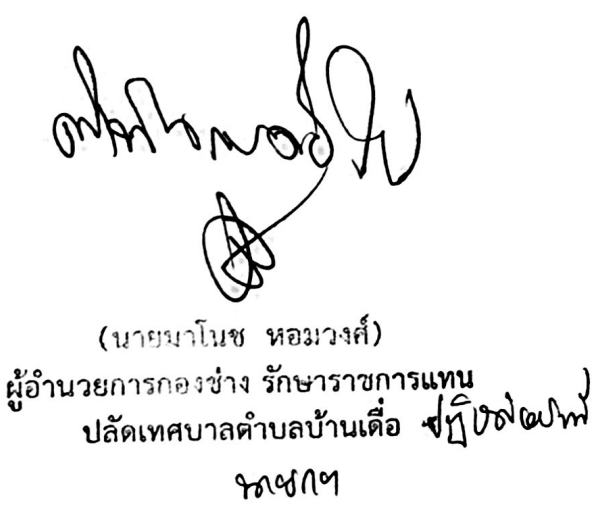 (นายมาโนช หอมวงศ์)
ผู้อำนวยการกองช่าง รักษาราชการแทน
ปลัดเทศบาลตำบลบ้านเดื่อ ปฏิบัติหน้าที่
นายกฯ